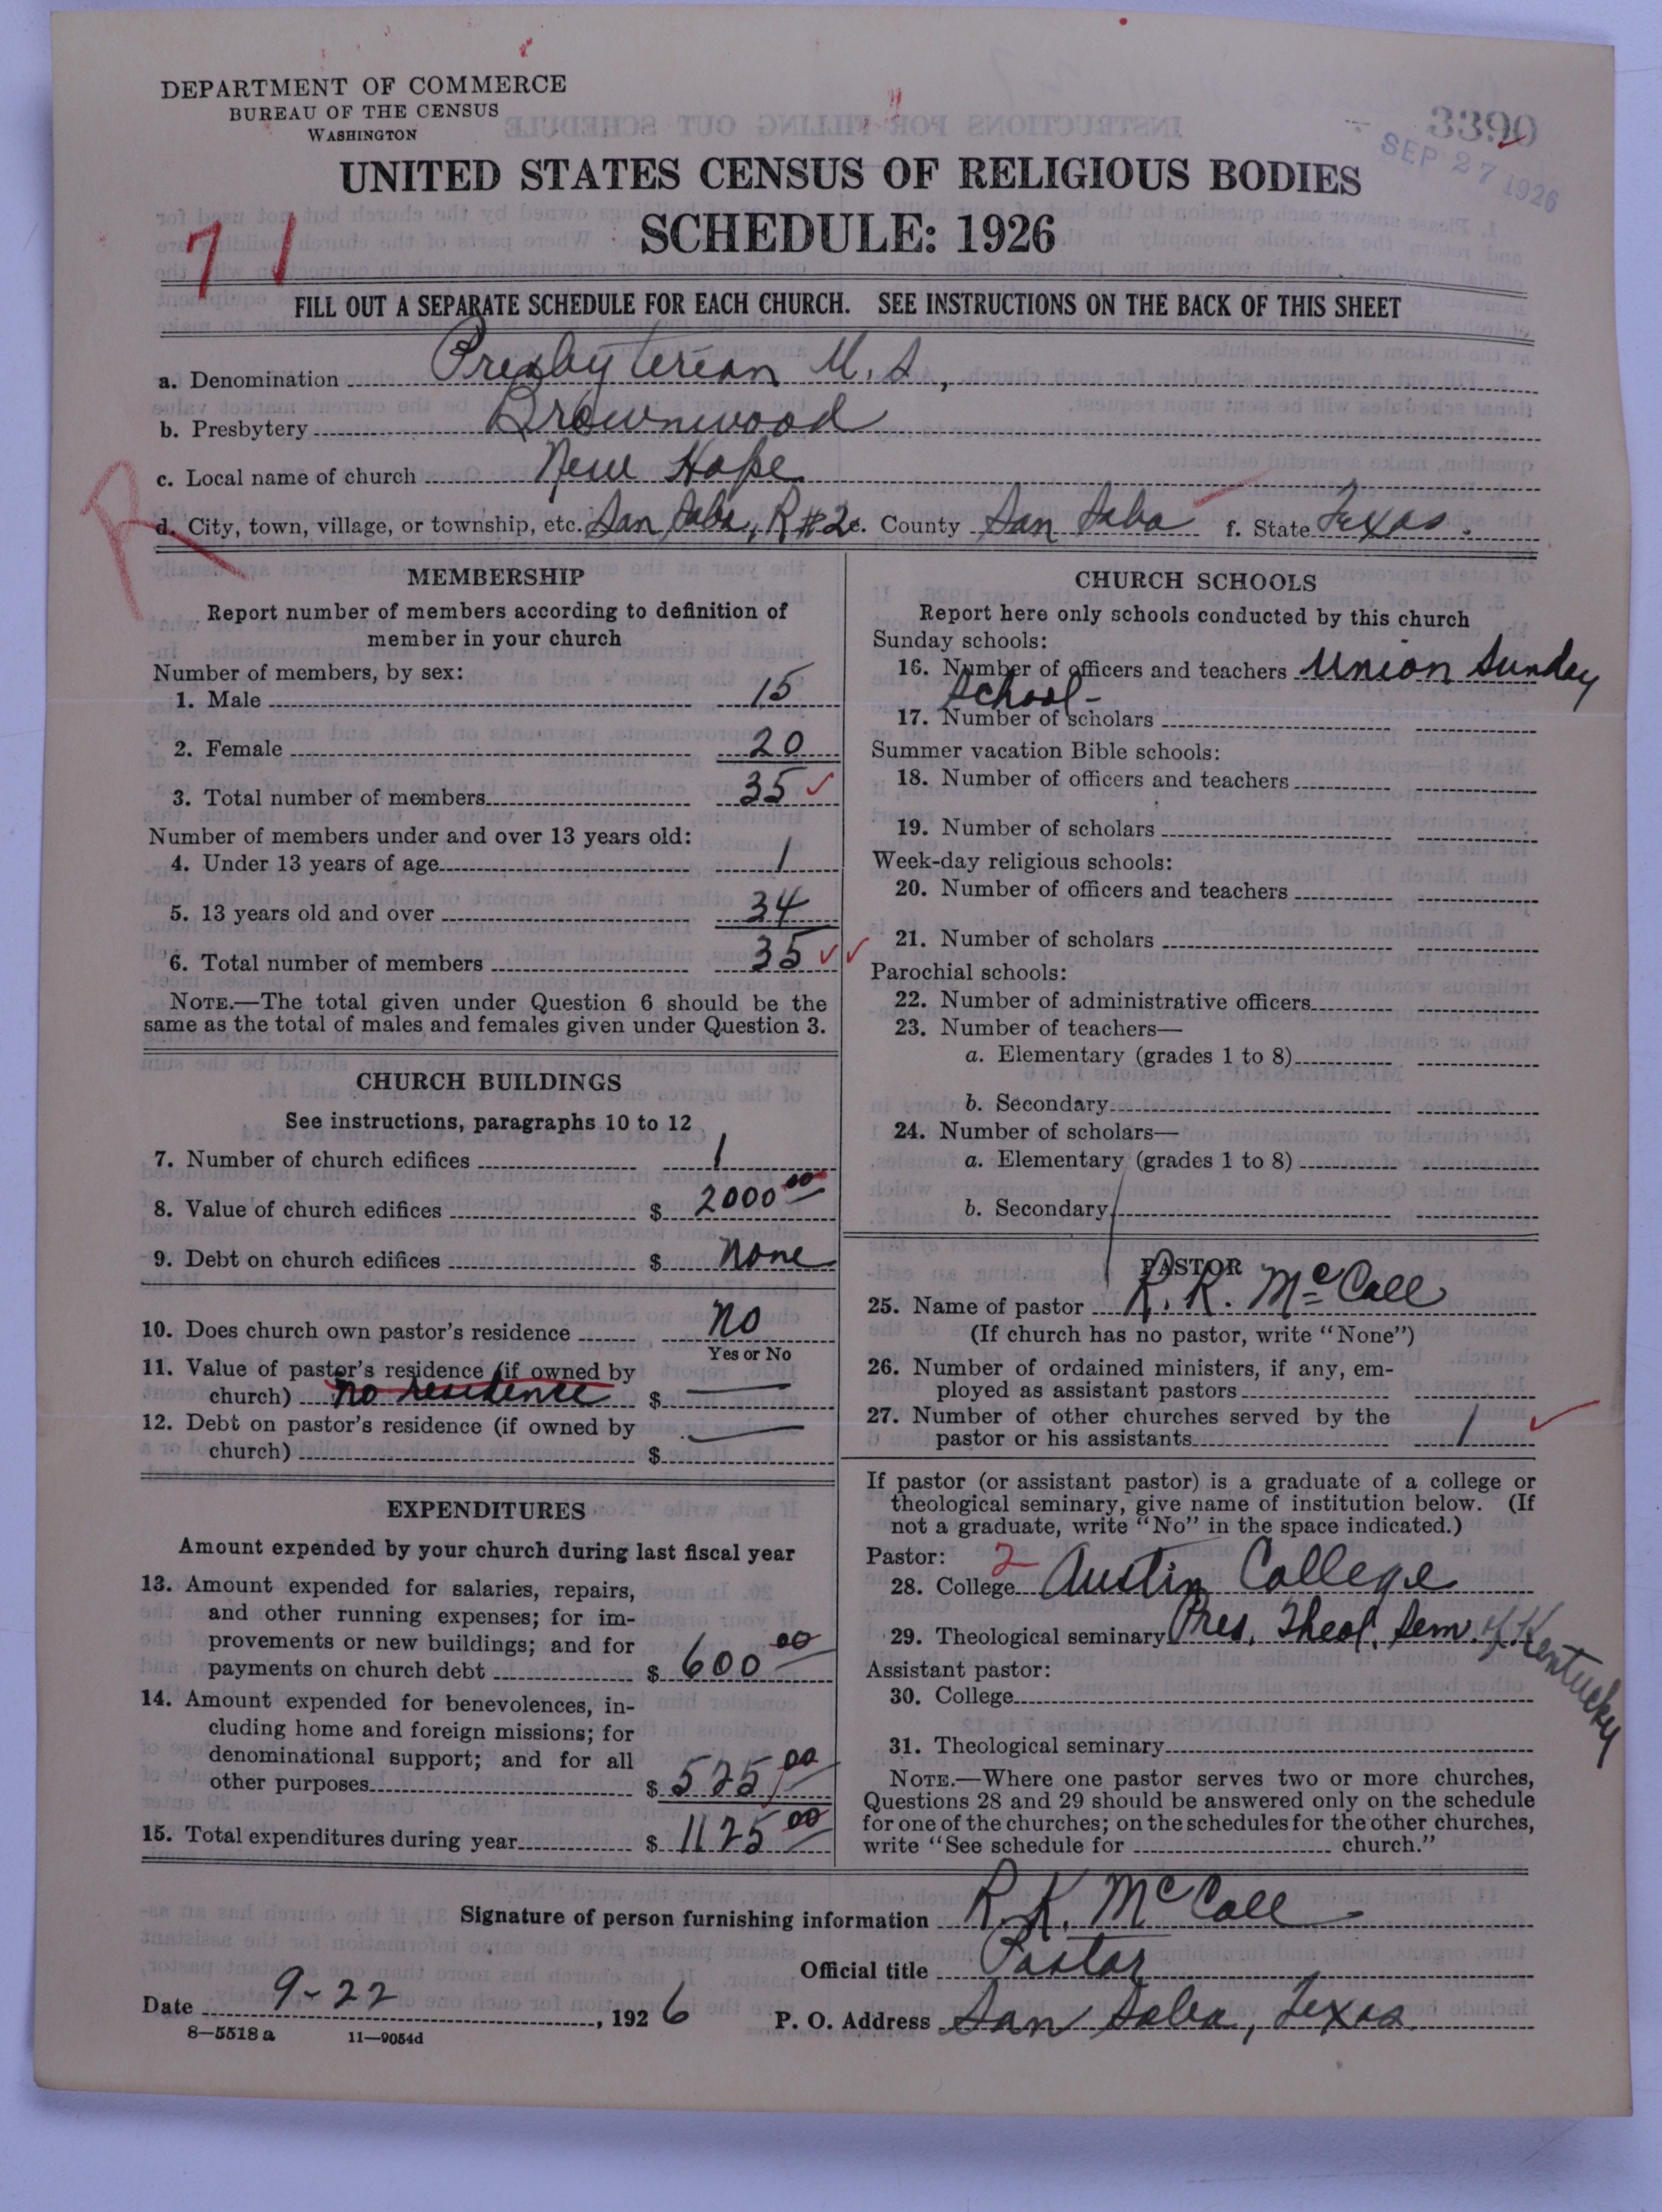 DEPARTMENT OF COMMERCE
BUREAU OF THE CENSUS
WASHINGTON
3390
SEP 27 1926
UNITED STATES CENSUS OF RELIGIOUS BODIES
SCHEDULE: 1926
71
FILL OUT A SEPARATE SCHEDULE FOR EACH CHURCH. SEE INSTRUCTIONS ON THE BACK OF THIS SHEET
a. Denomination Presbyterian U.S,
b. Presbytery Brownwood
c. Local name of church New Hope
R
d. City, town, village, or township, etc. San Saba, R#2 e. County San Saba f. State Texas.
MEMBERSHIP
Report number of members according to definition of
member in your church
Number of members, by sex:
1. Male 15
2. Female 20
3. Total number of members 35
Number of members under and over 13 years old:
4. Under 13 years of age 1
5. 13 years old and over 34
6. Total number of members 35
NOTE.—The total given under Question 6 should be the
same as the total of males and females given under Question 3.
CHURCH BUILDINGS
See instructions, paragraphs 10 to 12
7. Number of church edifices 1
8. Value of church edifices $ 2000 00
9. Debt on church edifices $ None
10. Does church own pastor's residence No
Yes or No
11. Value of pastor's residence (if owned by
church) No residence $ —
12. Debt on pastor's residence (if owned by
church) $ —
EXPENDITURES
Amount expended by your church during last fiscal year
13. Amount expended for salaries, repairs,
and other running expenses; for im-
provements or new buildings; and for
payments on church debt $ 600 00
14. Amount expended for benevolences, in-
cluding home and foreign missions; for
denominational support; and for all
other purposes $ 525 00
15. Total expenditures during year $ 1125 00
CHURCH SCHOOLS
Report here only schools conducted by this church
Sunday schools:
16. Number of officers and teachers Union Sunday
School-
17. Number of scholars
Summer vacation Bible schools:
18. Number of officers and teachers
19. Number of scholars
Week-day religious schools:
20. Number of officers and teachers
21. Number of scholars
Parochial schools:
22. Number of administrative officers
23. Number of teachers—
a. Elementary (grades 1 to 8)
b. Secondary
24. Number of scholars—
a. Elementary (grades 1 to 8)
b. Secondary
PASTOR
25. Name of pastor R. K. McCall
(If church has no pastor, write "None")
26. Number of ordained ministers, if any, em-
ployed as assistant pastors
27. Number of other churches served by the
pastor or his assistants 1
If pastor (or assistant pastor) is a graduate of a college or
theological seminary, give name of institution below. (If
not a graduate, write "No" in the space indicated.)
Pastor: 2
28. College Austin College
29. Theological seminary Pres. Theol. Sem. of Kentucky
Assistant pastor:
30. College
31. Theological seminary
NOTE.—Where one pastor serves two or more churches,
Questions 28 and 29 should be answered only on the schedule
for one of the churches; on the schedules for the other churches,
write "See schedule for church."
Signature of person furnishing information R. K. McCall
Official title Pastor
Date 9-22, 1926 P. O. Address San Saba, Texas
8—5518 a 11—9054d